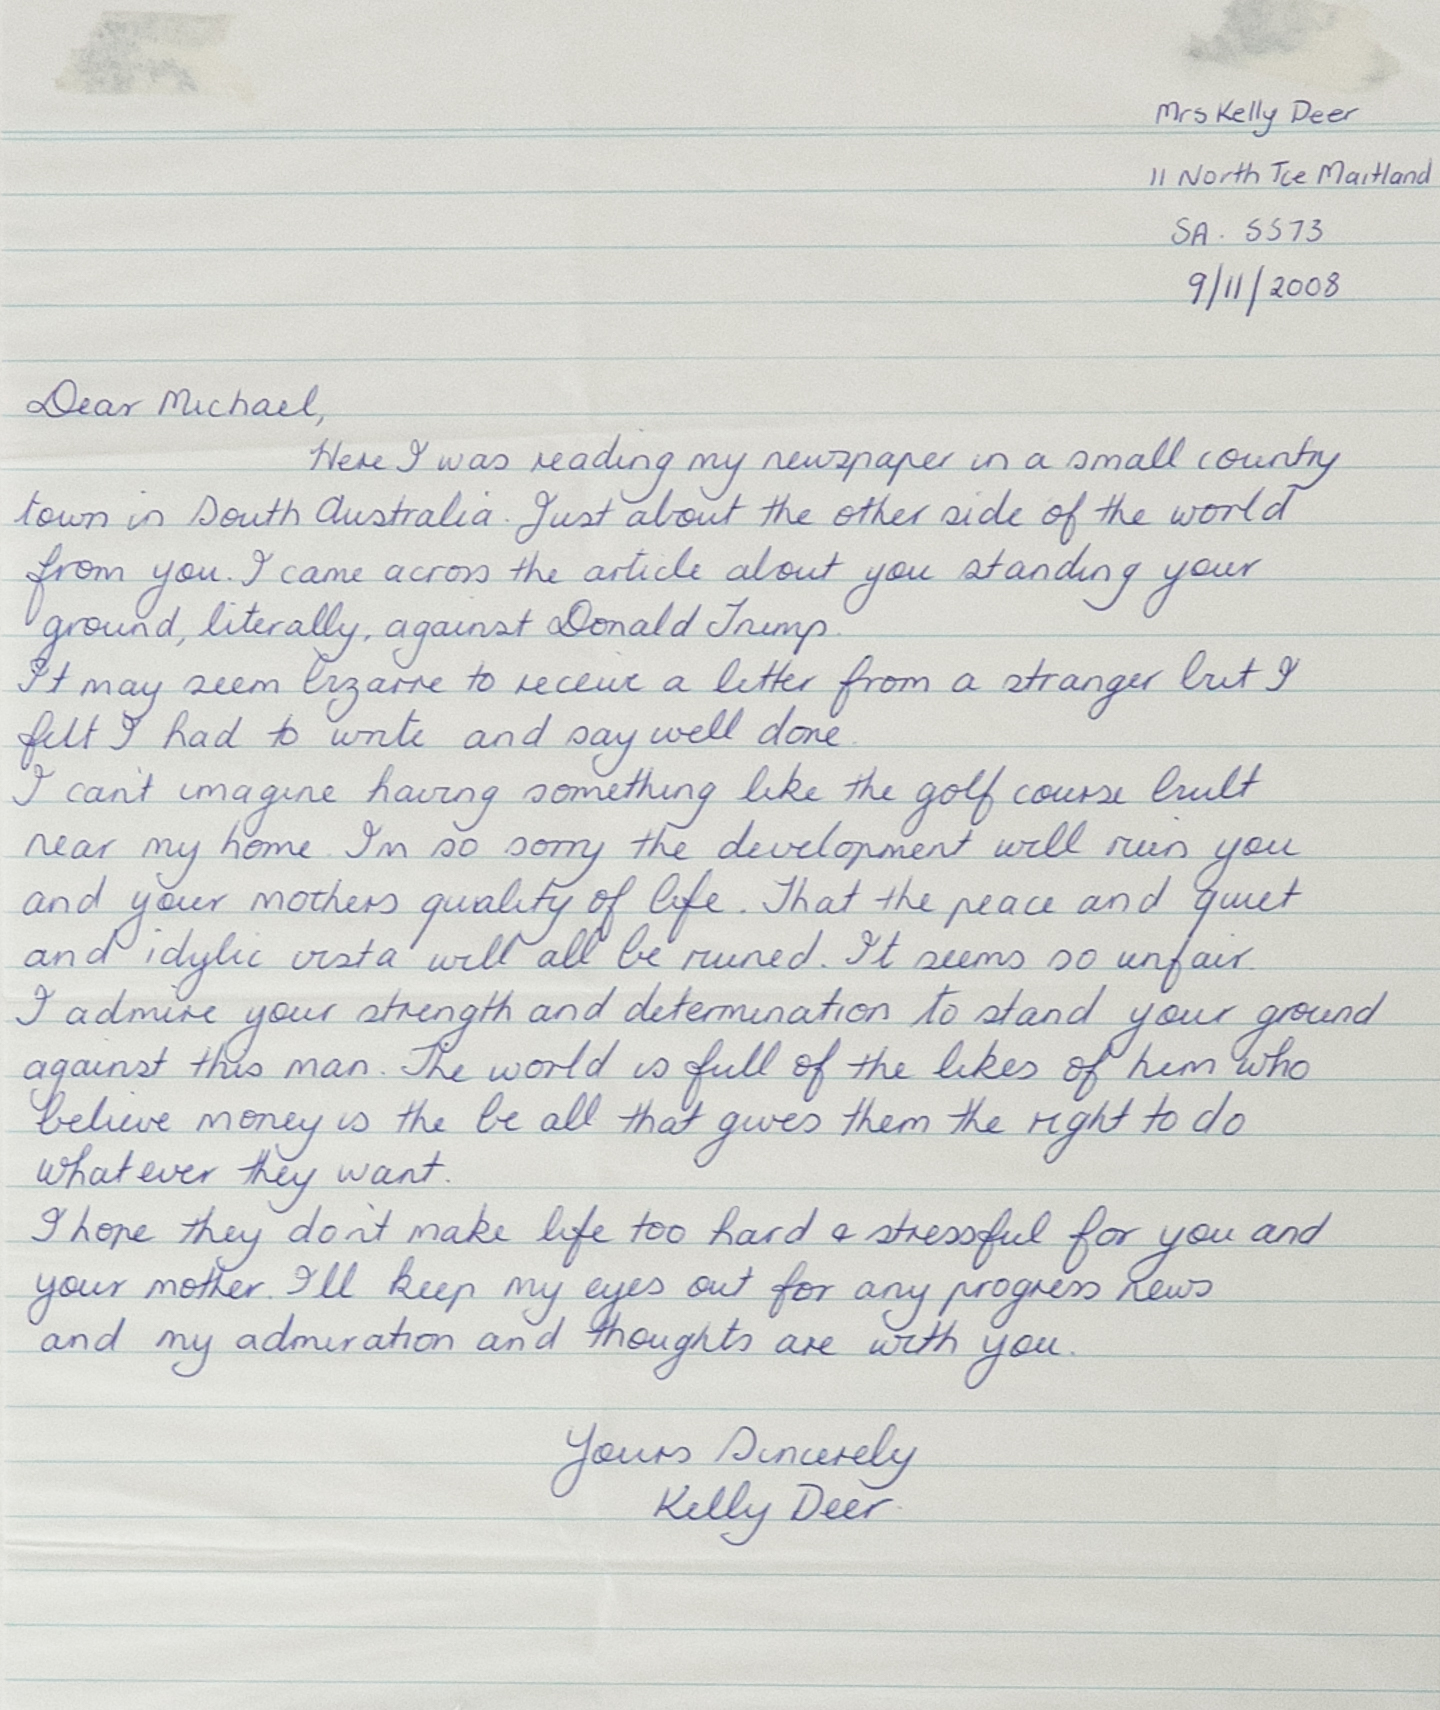 Mrs Kelly Deer
11 North Tce Maitland
SA. 5573
9/11/2008
Dear Michael,
Here I was reading my newspaper in a small country
town in South Australia. Just about the other side of the world
from you. I came across the article about you standing your
ground, literally, against Donald Trump.
It may seem bizarre to receive a letter from a stranger but I
felt I had to write and say well done.
I can't imagine having something like the golf course built
near my home. I'm so sorry the development will ruin you
and your mothers quality of life. That the peace and quiet
and idylic vista will all be ruined. It seems so unfair.
I admire your strength and determination to stand your ground
against this man. The world is full of the likes of him who
believe money is the be all that gives them the right to do
whatever they want.
I hope they don't make life too hard & stressful for you and
your mother. I'll keep my eyes out for any progress news
and my admiration and thoughts are with you.
Yours Sincerely
Kelly Deer.